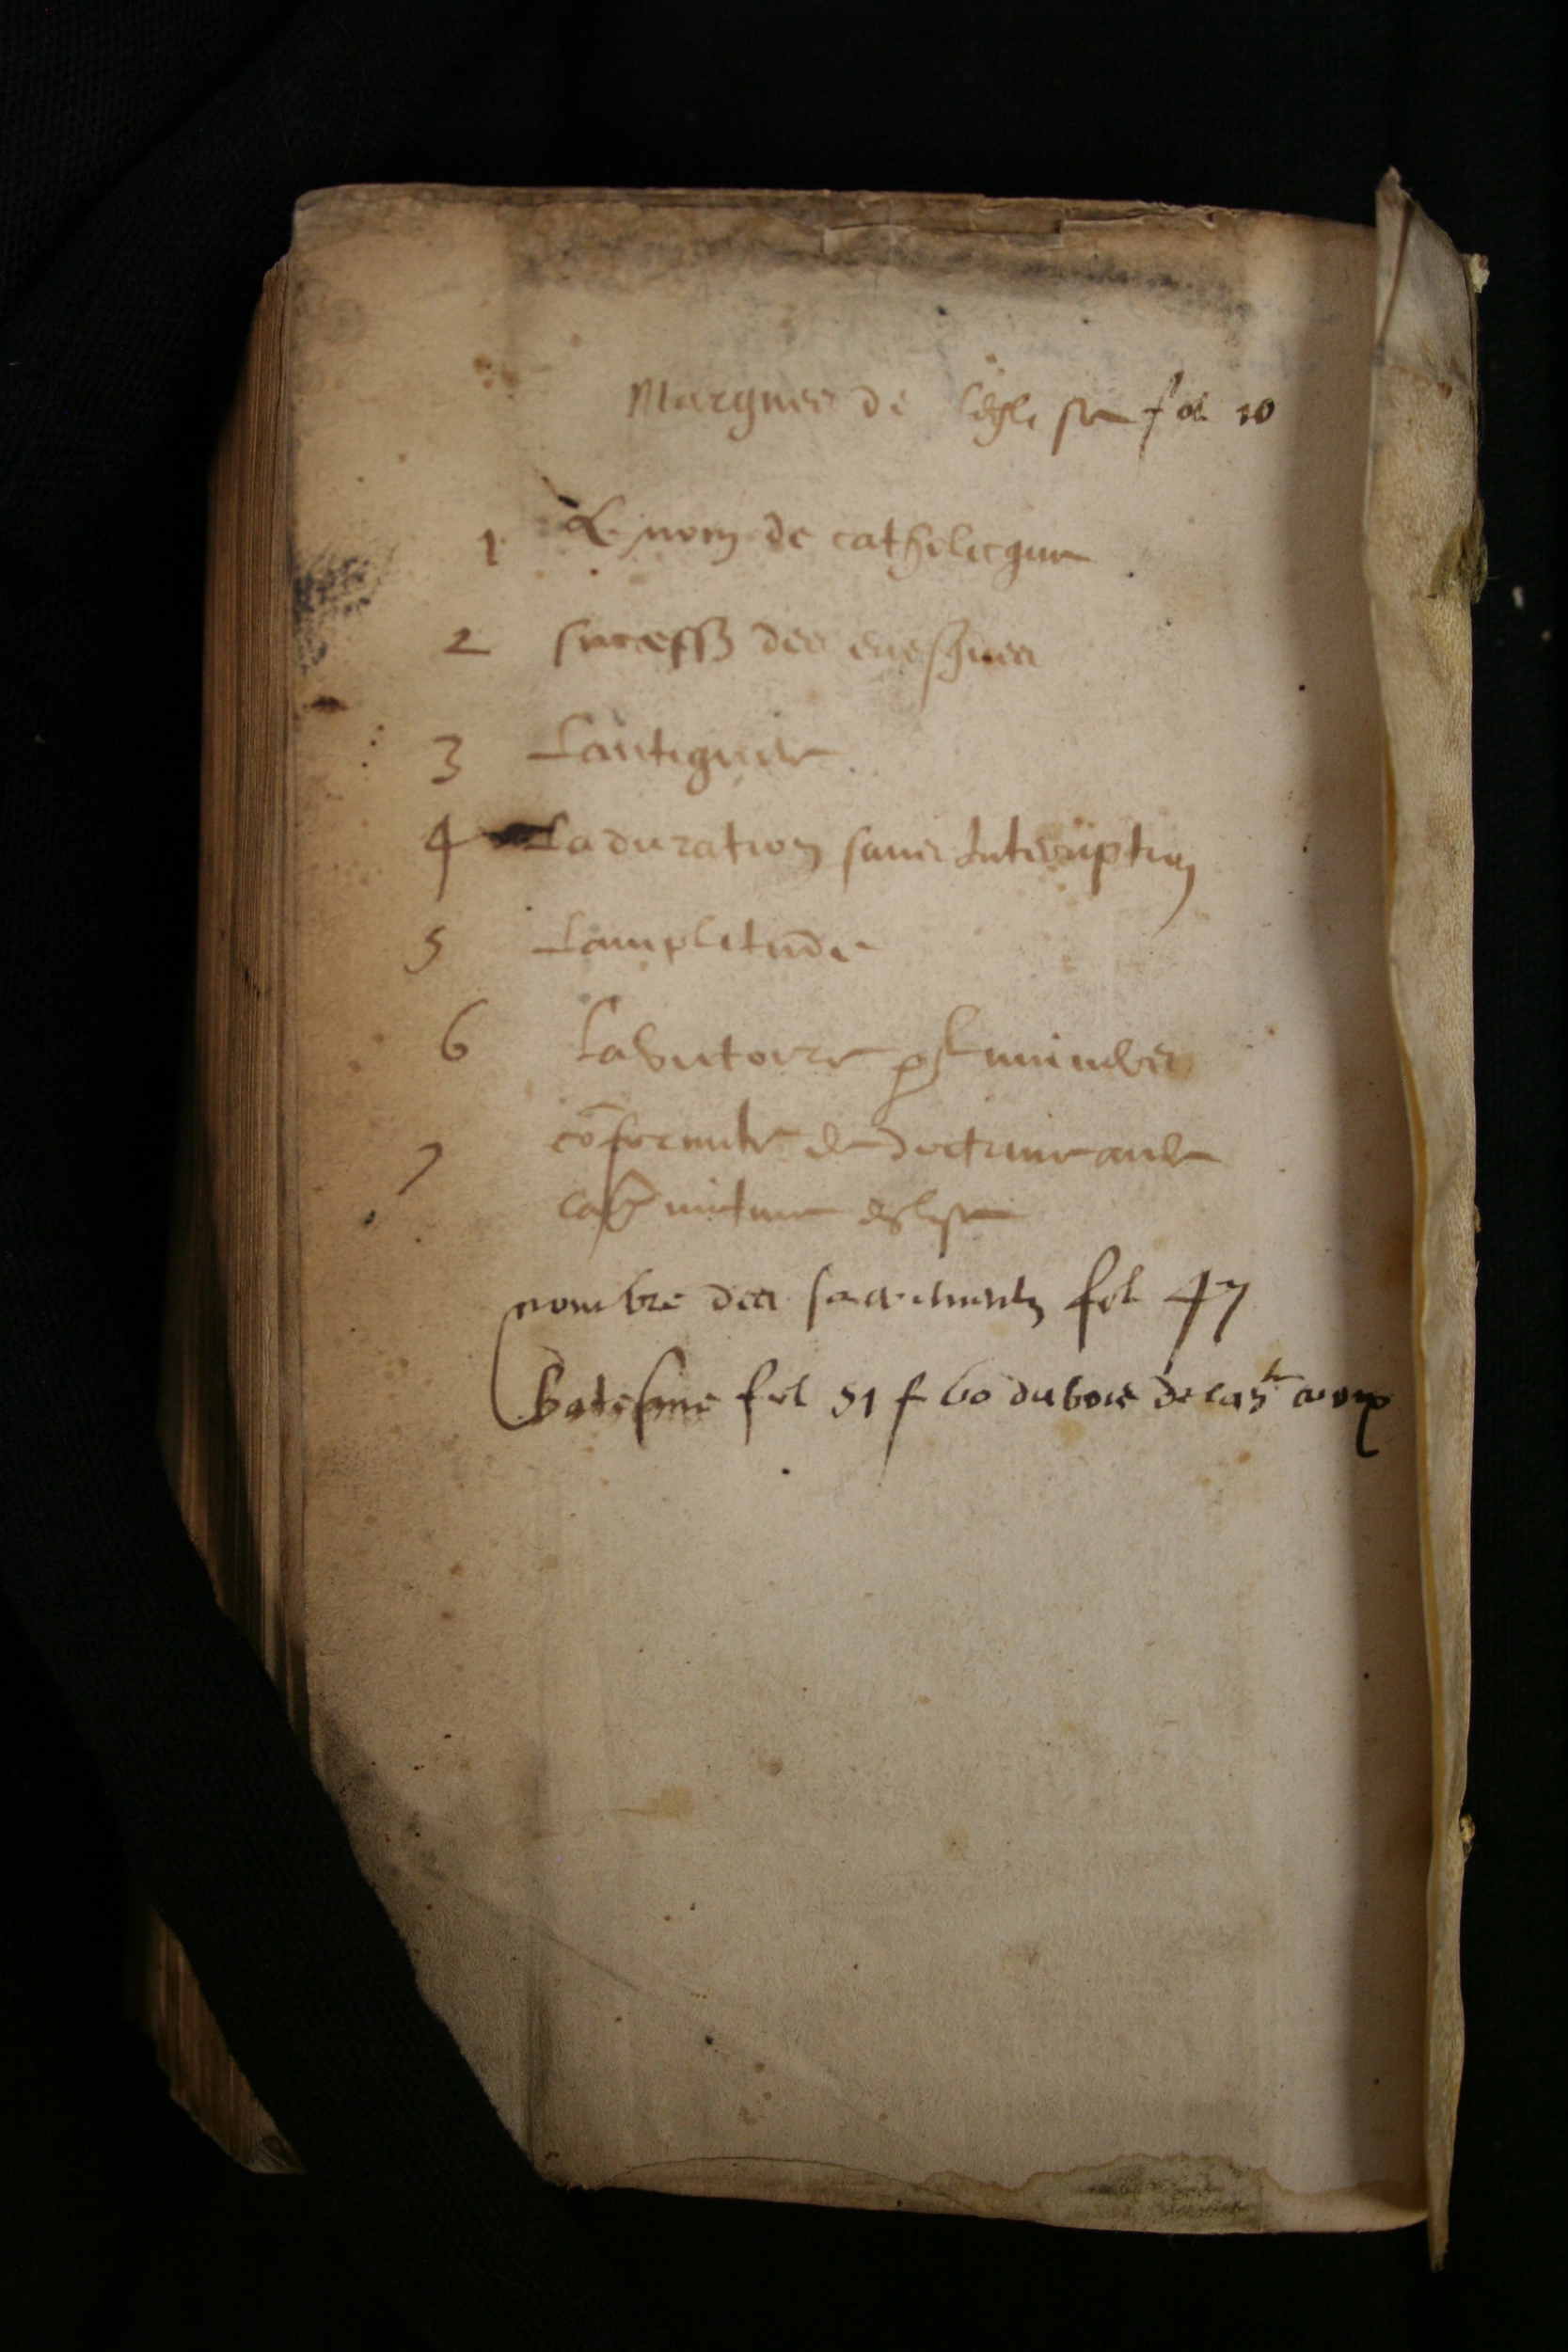 Marques de leglise fol 10
1 Le nom de catholicque
2 success des euesques
3 Lantiquite
4 La duration sans Interuption
5 Lamplitude
6 La victoire
7 coformite de doctrine auec
eglise
nombre des sacrements fol 47
batesme fol 51 f 60 du bois de la